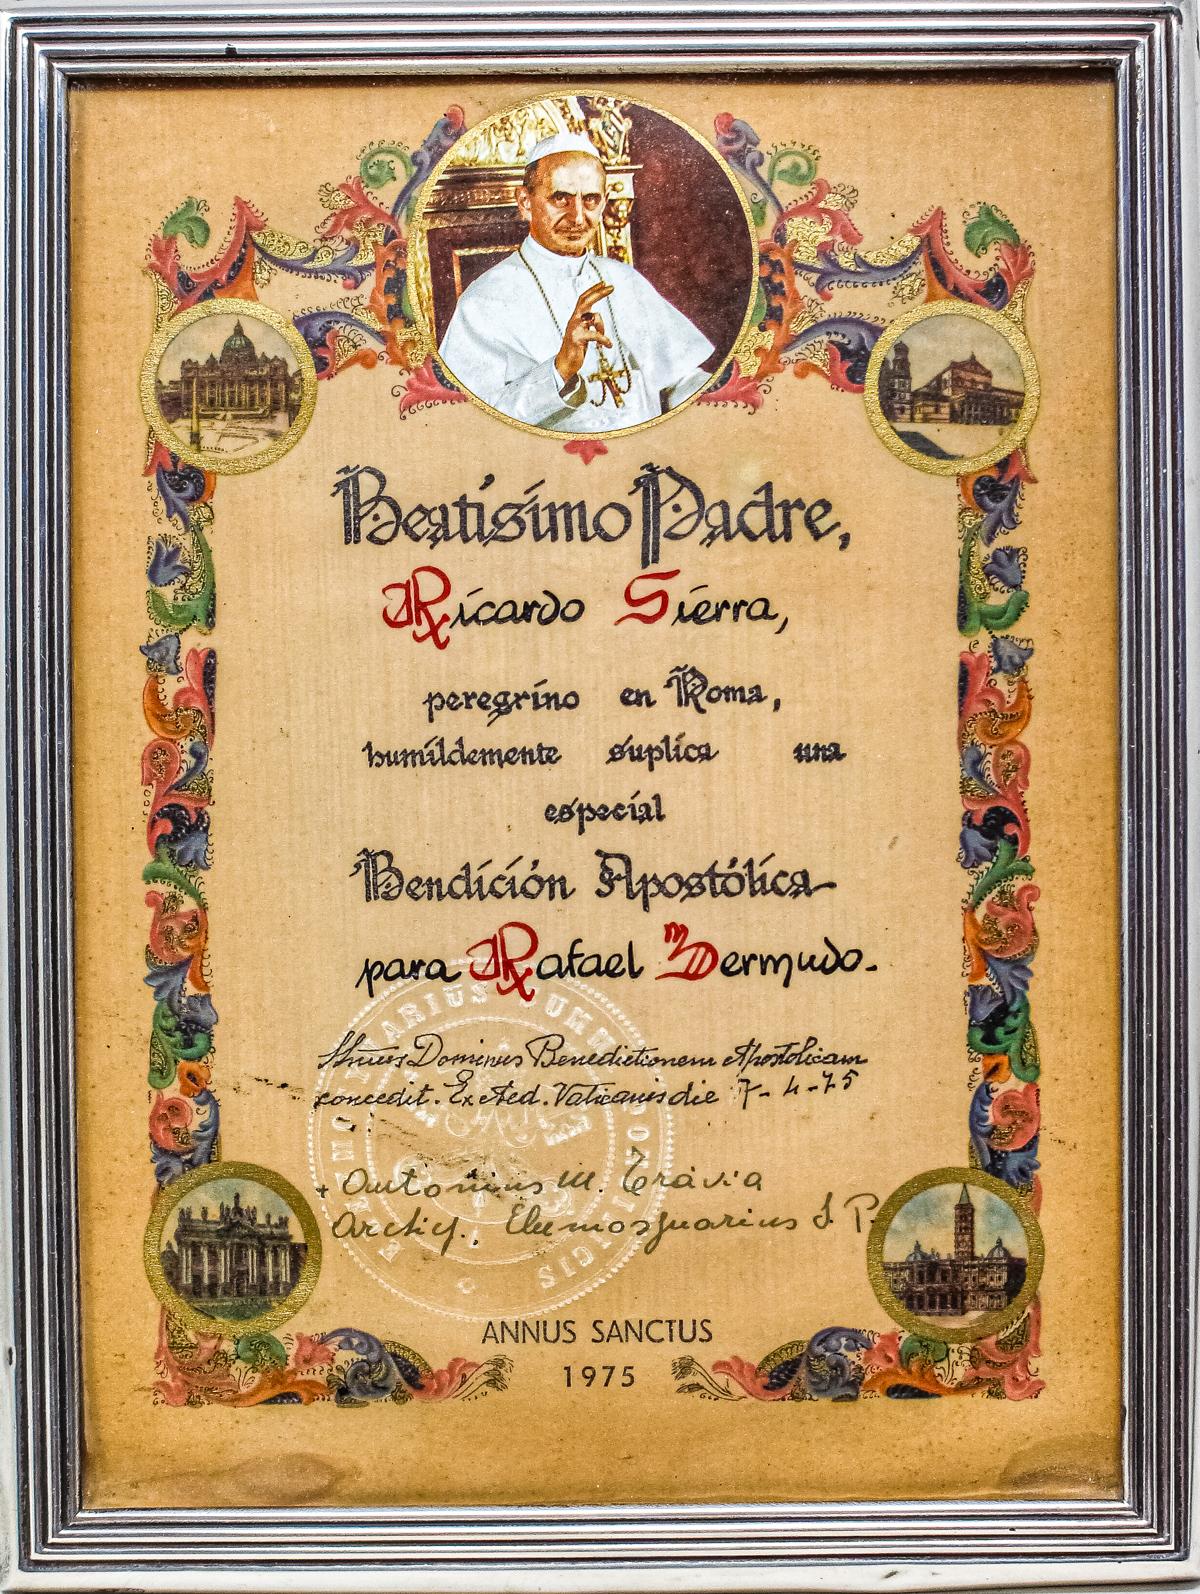 Beatísimo Padre,
Ricardo Sierra,
peregrino en Roma,
humildemente suplica una
especial
Bendición Apostólica
para Rafael Bermudo.
Dominus Benedictionem Apostolicam
concedit. Ex Aed. Vaticanis die 7-4-75
+ Antonius M. Travia
Archiep., Eleemosynarius S. P.
ANNUS SANCTUS
1975